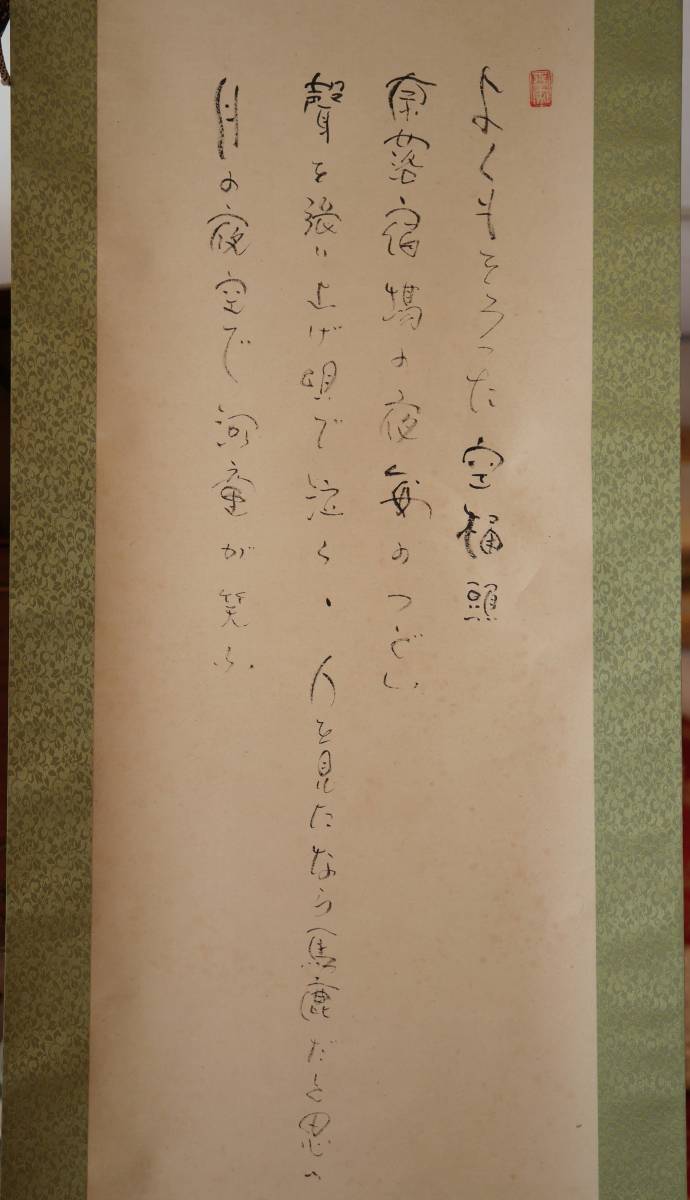 よくもそろった空桶頭
奈落宿場の夜毎のつどい
聲を張り上げ唄で泣く、人を見たなら馬鹿だと思へ
月の夜空で河童が笑ふ